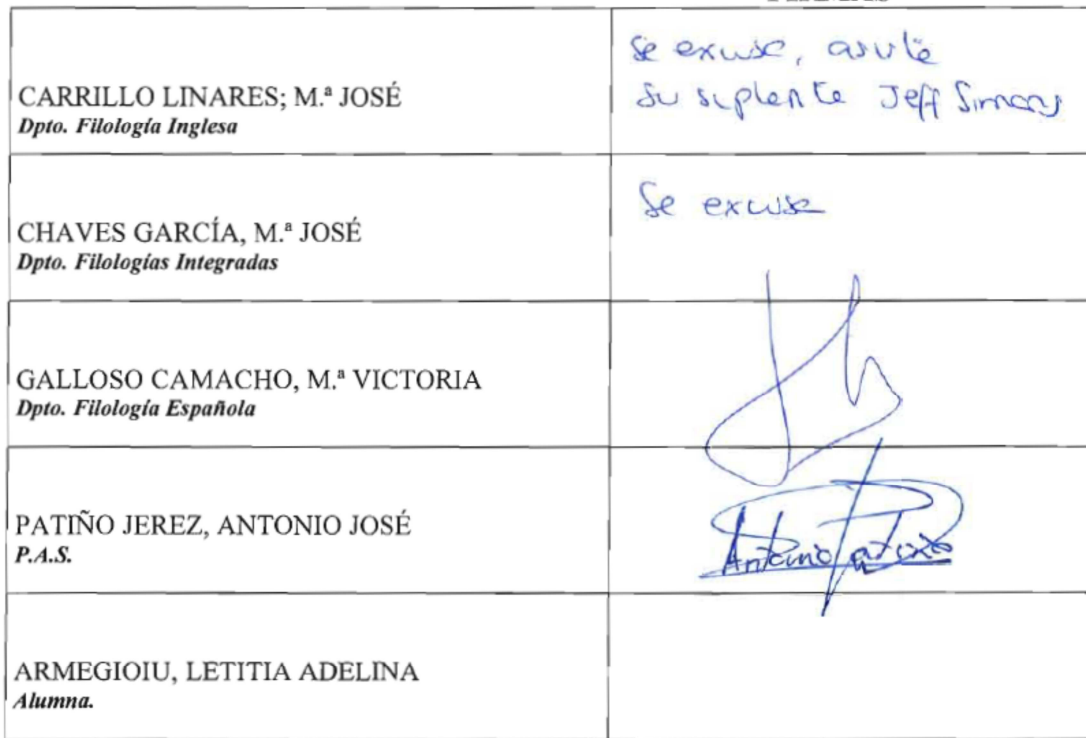 CARRILLO LINARES; M.ª JOSÉ
Dpto. Filología Inglesa
Se excusa, asiste
su suplente Jeff Simons
CHAVES GARCÍA, M.ª JOSÉ
Dpto. Filologías Integradas
Se excusa
GALLOSO CAMACHO, M.ª VICTORIA
Dpto. Filología Española
PATIÑO JEREZ, ANTONIO JOSÉ
P.A.S.
Antonio Patiño
ARMEGIOIU, LETITIA ADELINA
Alumna.